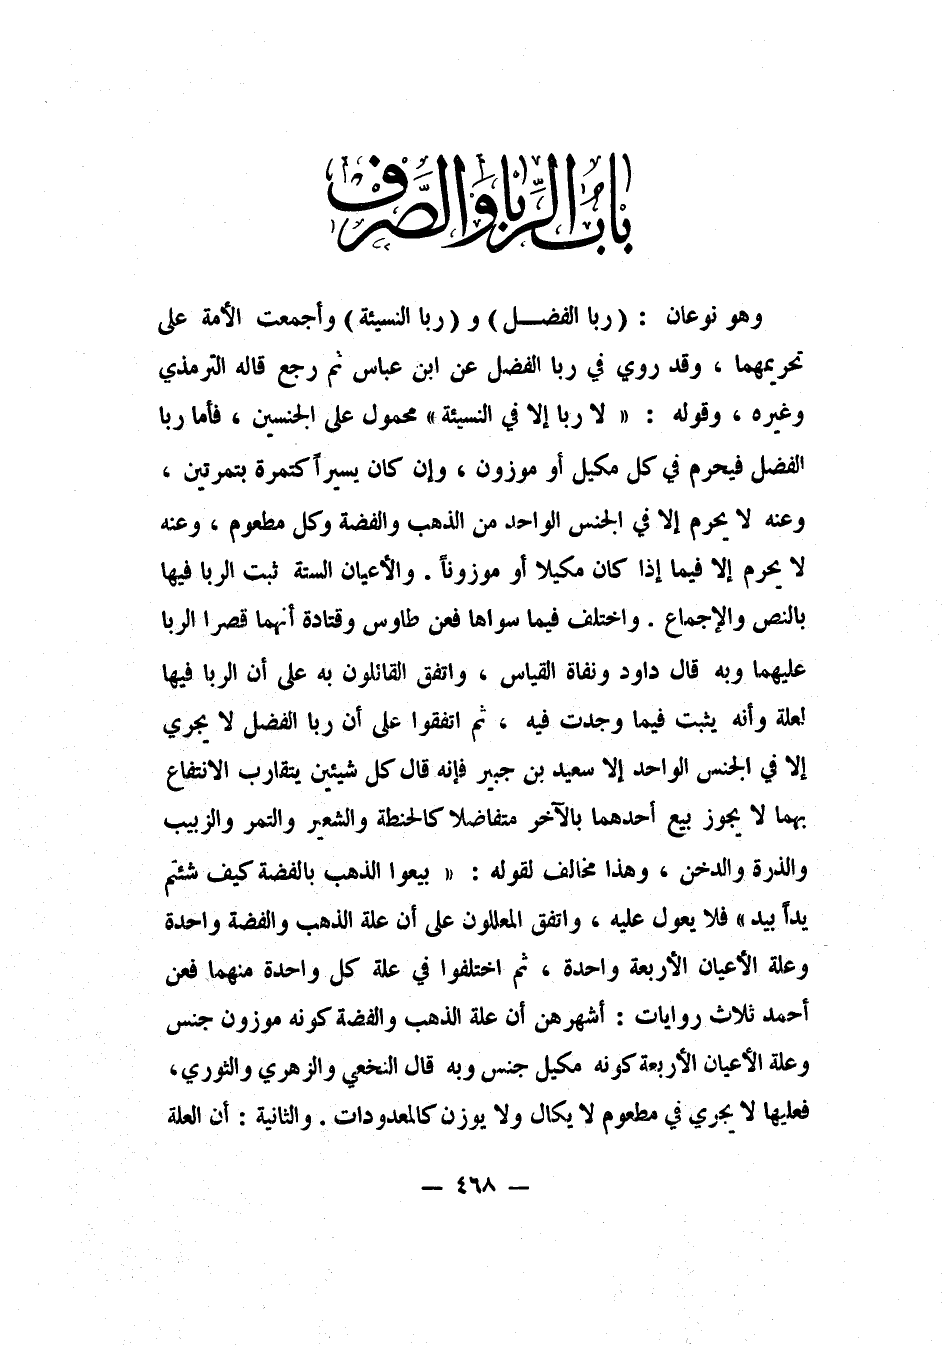 باب الربا والصرف
وهو نوعان : (ربا الفضل) و (ربا النسيئة) وأجمعت الأمة على
تحريمهما ، وقد روي في ربا الفضل عن ابن عباس ثم رجع قاله الترمذي
وغيره ، وقوله : « لا ربا إلا في النسيئة» محمول على الجنسين ، فأما ربا
الفضل فيحرم في كل مكيل أو موزون ، وإن كان يسيراً كتمرة بتمرتين ،
وعنه لا يحرم إلا في الجنس الواحد من الذهب والفضة وكل مطعوم ، وعنه
لا يحرم إلا فيما إذا كان مكيلا أو موزوناً . والأعيان الستة ثبت الربا فيها
بالنص والإجماع . واختلف فيما سواها فعن طاوس وقتادة أنهما قصرا الربا
عليهما وبه قال داود ونفاة القياس ، واتفق القائلون به على أن الربا فيها
لعلة وأنه يثبت فيما وجدت فيه ، ثم اتفقوا على أن ربا الفضل لا يجري
إلا في الجنس الواحد إلا سعيد بن جبير فإنه قال كل شيئين يتقارب الانتفاع
بهما لا يجوز بيع أحدهما بالآخر متفاضلا كالحنطة والشعير والتمر والزبيب
والذرة والدخن ، وهذا مخالف لقوله : « بيعوا الذهب بالفضة كيف شئتم
يداً بيد» فلا يعول عليه ، واتفق المعللون على أن علة الذهب والفضة واحدة
وعلة الأعيان الأربعة واحدة ، ثم اختلفوا في علة كل واحدة منهما فعن
أحمد ثلاث روايات : أشهرهن أن علة الذهب والفضة كونه موزون جنس
وعلة الأعيان الأربعة كونه مكيل جنس وبه قال النخعي والزهري والثوري،
فعليها لا يجري في مطعوم لا يكال ولا يوزن كالمعدودات . والثانية : أن العلة
— ٤٦٨ —